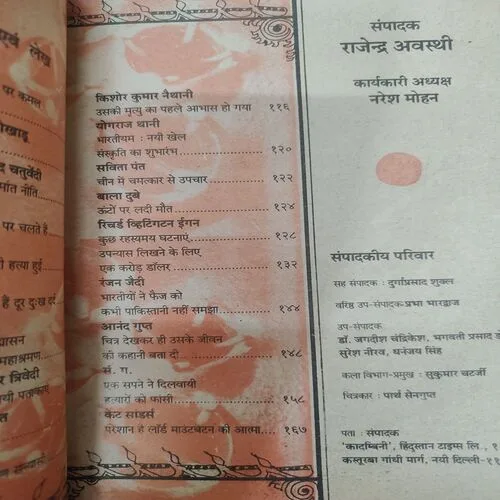 एवं लेख
पर कमल
चतुर्वेदी
नीति
पर चलते हैं
हत्या हुई
हैं दूर दुःख दर्द
महाश्रमण
त्रिवेदी
किशोर कुमार नैथानी
उसकी मृत्यु का पहले आभास हो गया ११६
योगराज थानी
भारतीयम : नयी खेल
संस्कृति का शुभारंभ १२०
सविता पंत
चीन में चमत्कार से उपचार १२२
बाला दुबे
ऊंटों पर लदी मौत १२४
रिचर्ड व्हिटिंगटन ईगन
कुछ रहस्यमय घटनाएं १२८
उपन्यास लिखने के लिए
एक करोड़ डॉलर १३२
रंजन जैदी
भारतीयों ने फैज को
कभी पाकिस्तानी नहीं समझा १४४
आनंद गुप्त
चित्र देखकर ही उसके जीवन
की कहानी बता दी १४८
सं. ग.
एक सपने ने दिलवायी
हत्यारों को फांसी १५८
केट सांडर्स
परेशान है लॉर्ड माउंटबेटन की आत्मा १६७
संपादक
राजेन्द्र अवस्थी
कार्यकारी अध्यक्ष
नरेश मोहन
संपादकीय परिवार
सह संपादक : दुर्गाप्रसाद शुक्ल
वरिष्ठ उप-संपादक-प्रभा भारद्वाज
उप-संपादक
डॉ. जगदीश चंद्रिकेश, भगवती प्रसाद डो
सुरेश नीरव, धनंजय सिंह
कला विभाग-प्रमुख : सुकुमार चटर्जी
चित्रकार : पार्थ सेनगुप्त
पता : संपादक
'कादम्बिनी', हिंदुस्तान टाइम्स लि., १
कस्तूरबा गांधी मार्ग, नयी दिल्ली-११